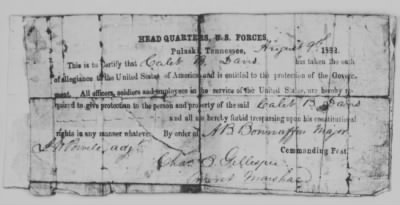 HEAD QUARTERS, U. S. FORCES,
Pulaski, Tennessee, August 9th 1862.
This is to Certify that Caleb B. Davis has taken the oath
of allegiance to the United States of America and is entitled to the protection of the Govern-
ment. All officers, soldiers and employees in the service of the United States, are hereby re-
quired to give protection to the person and property of the said Caleb B Davis
and all are hereby forbid trespassing upon his constitutional
rights in any manner whatever. By order of A B Bonnaffon Major
adjt. Commanding Post.
Chas. B. Gillespie
Provost Marshal